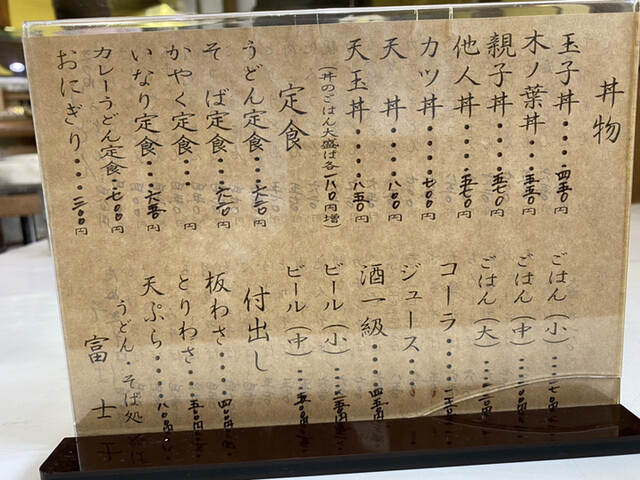 丼物
玉子丼・・・・四五〇円
木ノ葉丼・・・五五〇円
親子丼・・・・五七〇円
他人丼・・・・五七〇円
カツ丼・・・・七〇〇円
天丼・・・・・八〇〇円
天玉丼・・・・八五〇円
（丼のごはん大盛は各一八〇円増）
定食
うどん定食・・・六二〇円
そば定食・・・六二〇円
かやく定食・・・円
いなり定食・・・六五〇円
カレーうどん定食・・七〇〇円
おにぎり・・・三〇〇円
ごはん（小）
ごはん（中）
ごはん（大）
コーラ
ジュース
酒一級・・・・四五〇
ビール（小）
ビール（中）
付出し
板わさ
とりわさ
天ぷら
うどん・そば処
富士